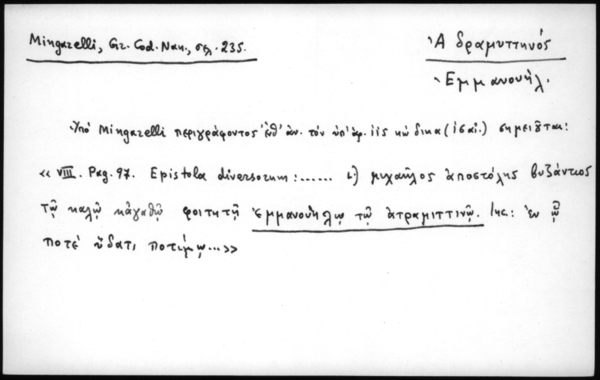 Mingarelli, Gr. Cod. Nan., σελ. 235.
Ἀδραμυττηνός
Ἐμμανουήλ.
Ὑπὸ Mingarelli περιγράφοντος ἐνθ' ἀν. τὸν ὑπ' ἀρ. κώδικα σημειοῦται:
«VIII. Pag. 97. Epistola diversorum: ...... μιχαῆλος ἀποστόλης βυζάντιος
τῷ καλῷ κἀγαθῷ φοιτητῇ ἐμμανουήλῳ τῷ ἀτραμιττινῷ. Inc: ἐν ᾧ
ποτὲ ὕδατι ποτίμῳ...»